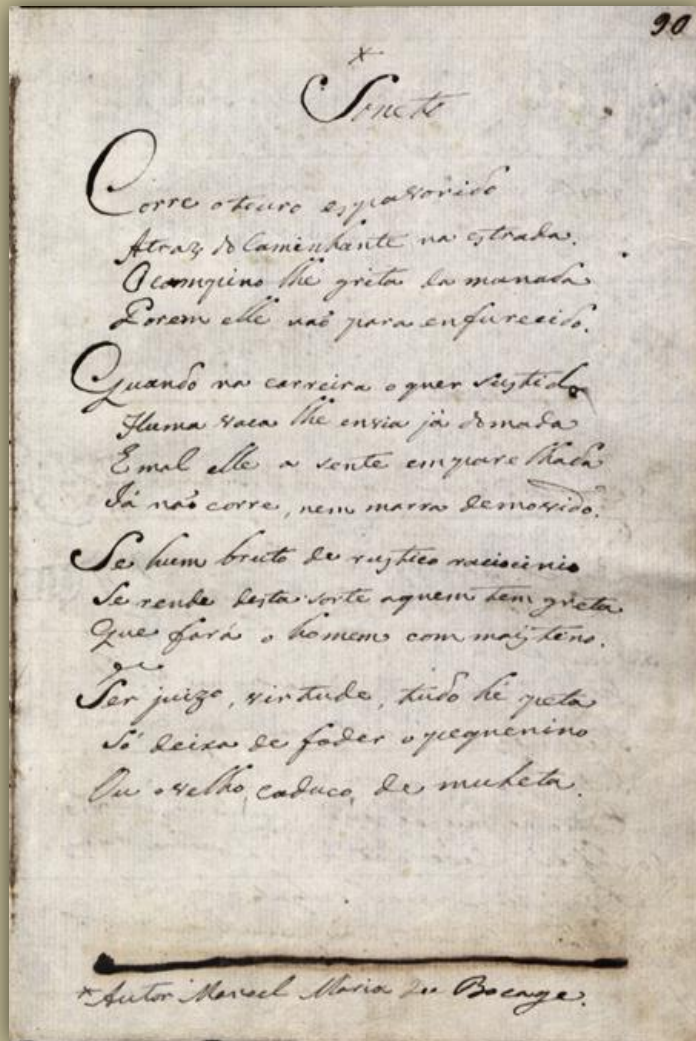 90
*
Soneto
Corre o touro espavorido
Atraz do Caminhante na estrada.
O campino lhe grita da manada
Porem elle naõ para enfurecido.
Quando na carreira o quer sustido
Huma vaca lhe envia já domada
E mal elle a sente emparelhada
Já naõ corre, nem marra demovido.
Se hum bruto de rustico raciocinio
Se rende desta sorte aquem tem greta
Que fará o homem com mais tino.
Ser juizo, virtude, tudo he peta
Só deixa de foder o pequenino
Ou o velho, caduco, de muleta.
*Autor Manoel Maria du Bocage.